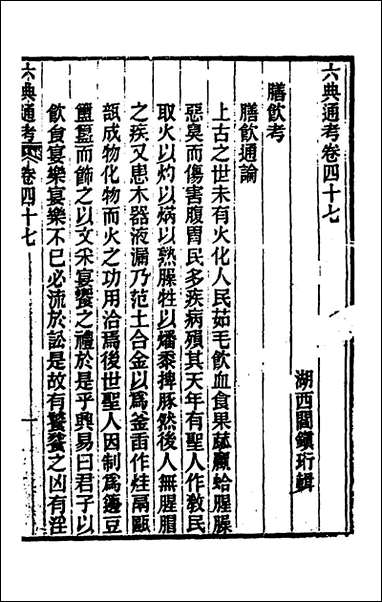 六典通考卷四十七
湖西閻鎮珩輯
膳飲考
膳飲通論
上古之世未有火化人民茹毛飲血食果蓏蠃蛤腥臊
惡臭而傷害腹胃民多疾病殞其天年有聖人作教民
取火以灼以焫以熟臊牲以燔黍捭豚然後人無腥膻
之疾又患木器液漏乃范土合金以爲釜甾作烓鬲甌
瓿成物化物而火之功用洽爲後世聖人因制爲籩豆
簠簋而飾之以文采宴饗之禮於是乎興易曰君子以
飲食宴樂宴樂不已必流於訟是故有饕餮之凶有淫
六典通考
卷四十七
一